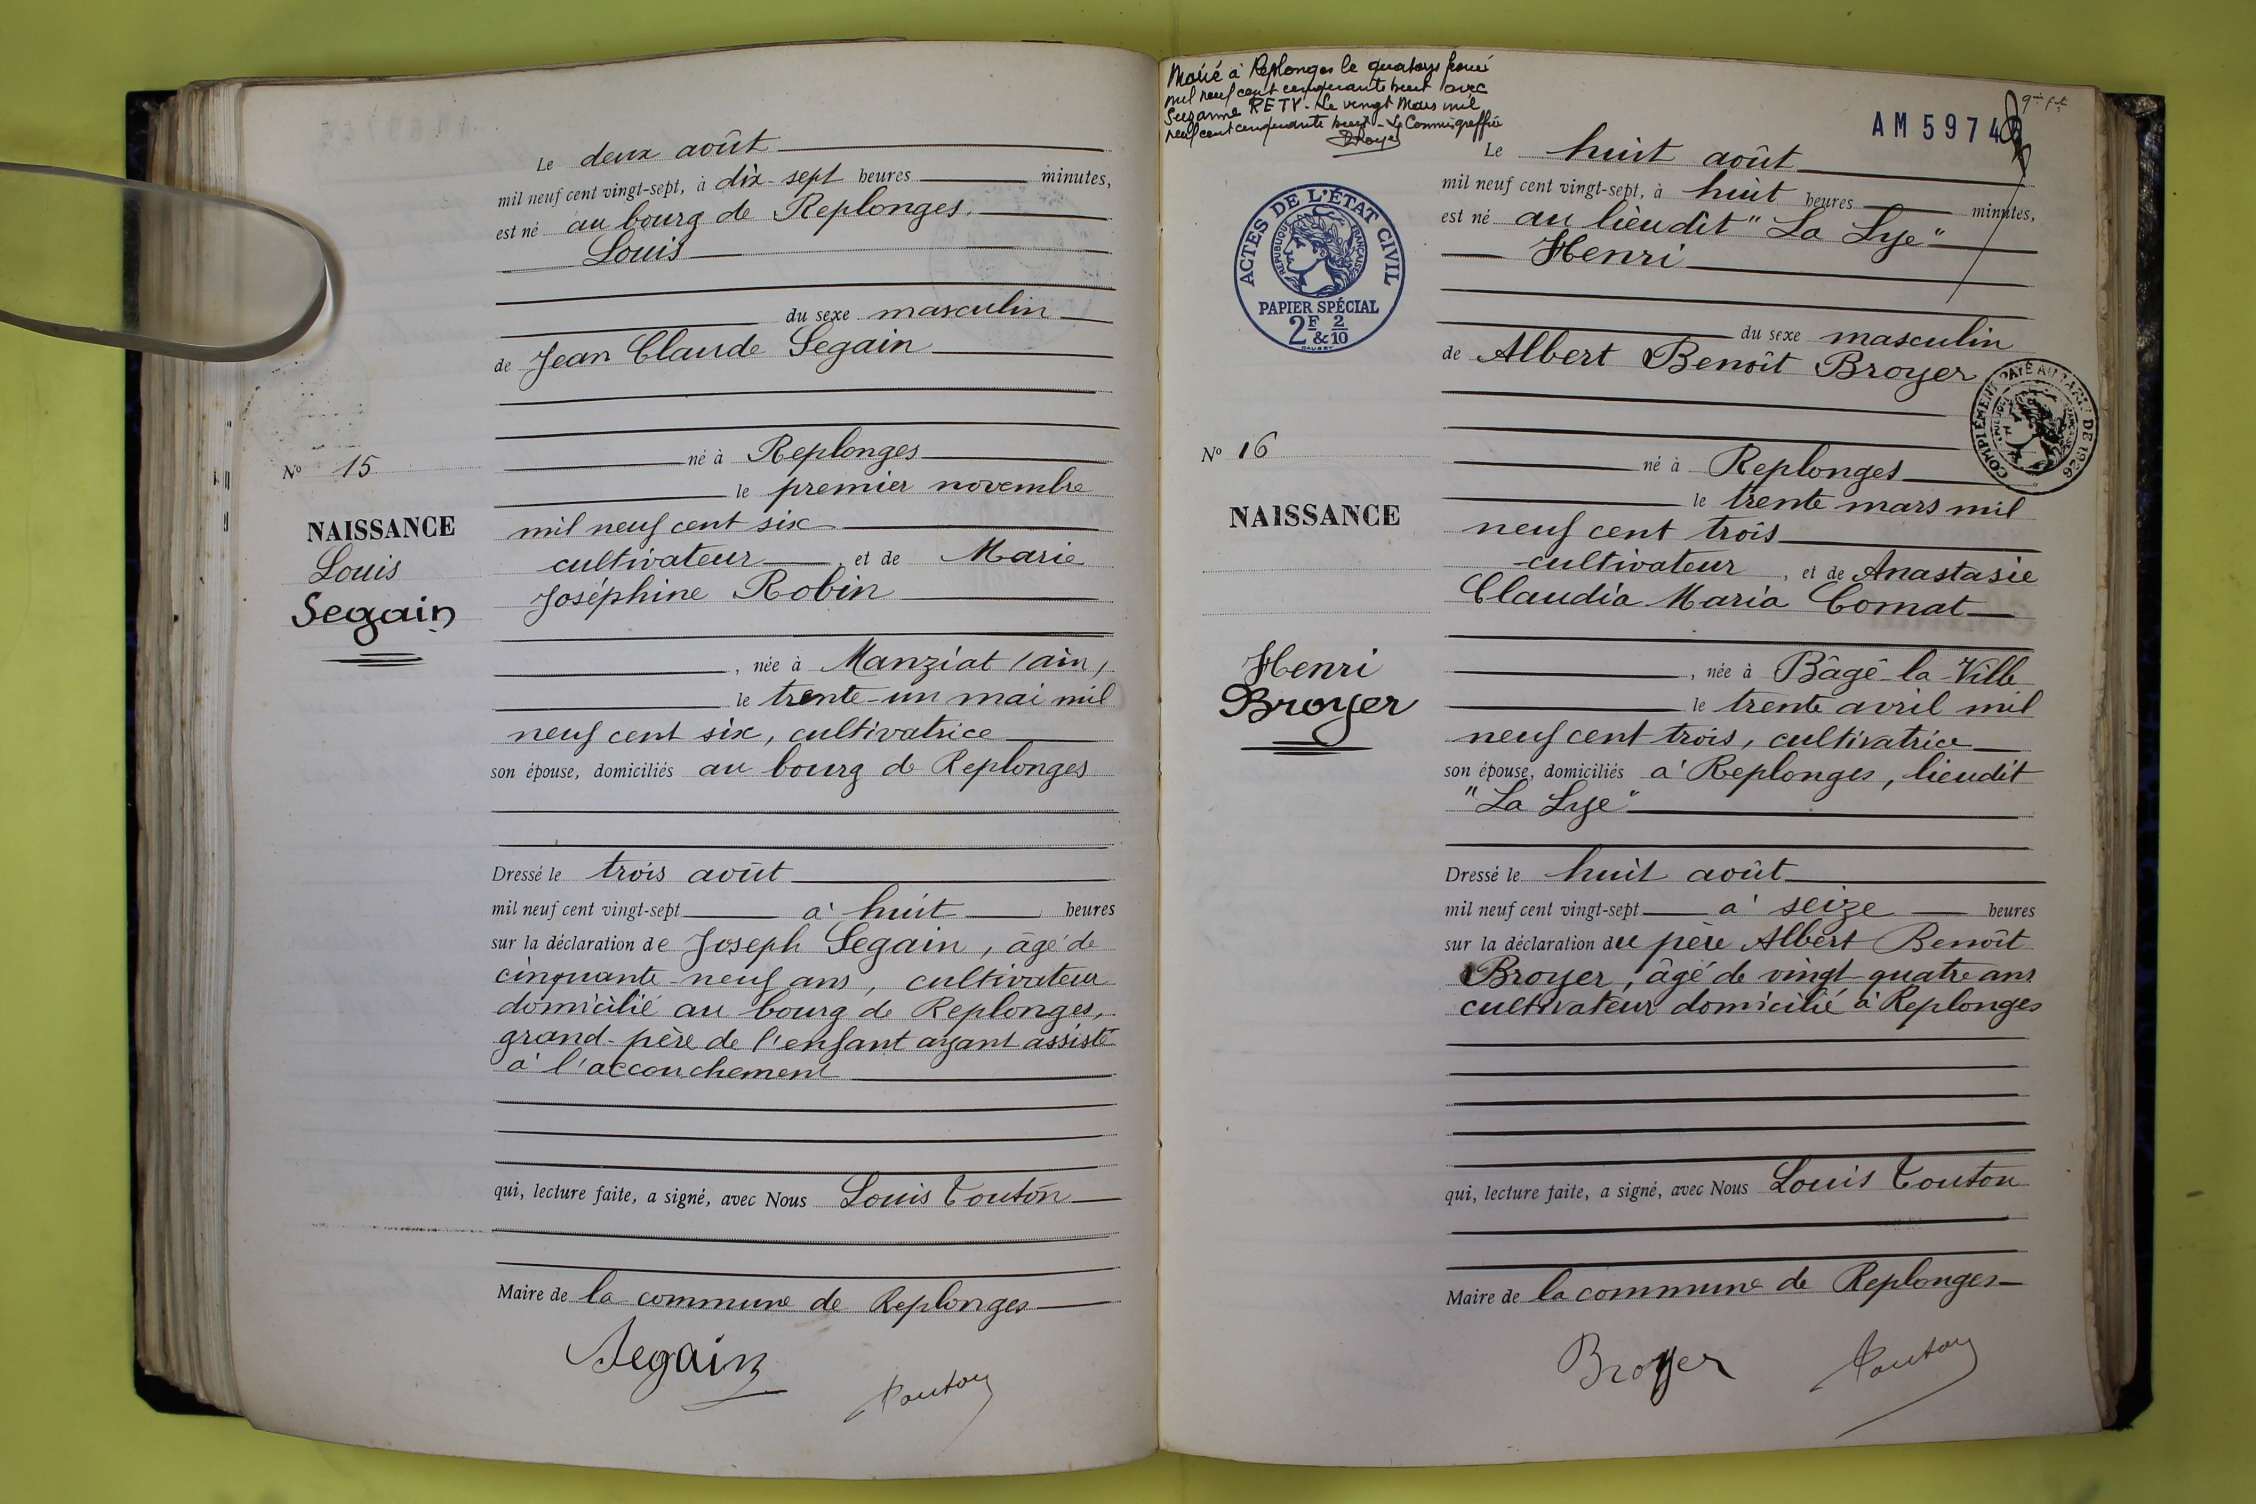 Le deux août
mil neuf cent vingt-sept, à dix-sept heures minutes,
est né au bourg de Replonges.
Louis
du sexe masculin
de Jean Claude Segain
né à Replonges
le premier novembre
mil neuf cent six
cultivateur, et de Marie
Joséphine Robin
, née à Manziat (ain)
le trente-un mai mil
neuf cent six, cultivatrice
son épouse, domiciliés au bourg de Replonges
Dressé le trois août
mil neuf cent vingt-sept à huit heures
sur la déclaration de Joseph Segain, âgé de
cinquante-neuf ans, cultivateur
domicilié au bourg de Replonges,
grand-père de l'enfant ayant assisté
à l'accouchement
qui, lecture faite, a signé, avec Nous Louis Touton
Maire de la commune de Replonges
Segain
Touton
No 15
NAISSANCE
Louis
Segain
Marié à Replonges le quatorze
mil neuf cent cinquante huit avec
Suzanne RETY - Le vingt Mars mil
neuf cent cinquante huit - Le Commis greffier
Broyer
AM 5974
ACTES DE L'ÉTAT CIVIL
RÉPUBLIQUE FRANÇAISE
PAPIER SPÉCIAL
2F & 2/10
Le huit août
mil neuf cent vingt-sept, à huit heures minutes,
est né au lieudit "La Lye"
Henri
du sexe masculin
de Albert Benoît Broyer
COMPLÉMENT PAYÉ AU TARIF DE 1926
né à Replonges
le trente mars mil
neuf cent trois
cultivateur, et de Anastasie
Claudia Maria Comat
, née à Bâgé-la-Ville
le trente avril mil
neuf cent trois, cultivatrice
son épouse, domiciliés à Replonges, lieudit
"La Lye"
Dressé le huit août
mil neuf cent vingt-sept à seize heures
sur la déclaration du père Albert Benoît
Broyer, âgé de vingt-quatre ans
cultivateur domicilié à Replonges
qui, lecture faite, a signé, avec Nous Louis Touton
Maire de la commune de Replonges
Broyer
Touton
No 16
NAISSANCE
Henri
Broyer